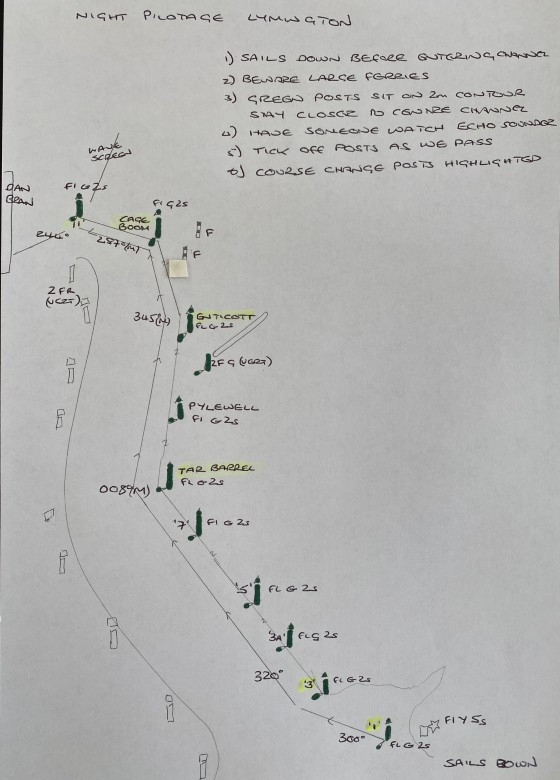 NIGHT PILOTAGE LYMINGTON
1) SAILS DOWN BEFORE ENTERING CHANNEL
2) BEWARE LARGE FERRIES
3) GREEN POSTS SIT ON 2m CONTOUR
STAY CLOSER TO CENTRE CHANNEL
4) HAVE SOMEONE WATCH ECHO SOUNDER
5) TICK OFF POSTS AS WE PASS
6) COURSE CHANGE POSTS HIGHLIGHTED
WAVE
SCREEN
DAN
BRAN
Fl G 2s
'11'
244°
287°(M)
CAGE
BOOM
Fl G2s
F
F
2 FR
(VERT)
345(M)
ENTICOTT
FL G 2s
2F G (VERT)
PYLEWELL
Fl G 2s
TAR BARREL
FL G 2s
008°(M)
'7'
Fl G 2s
'5'
FL G 2s
'3A'
FLG 2s
320°
'3'
FL G 2s
300°
'1'
FL G 2s
Fl Y 5s
SAILS DOWN